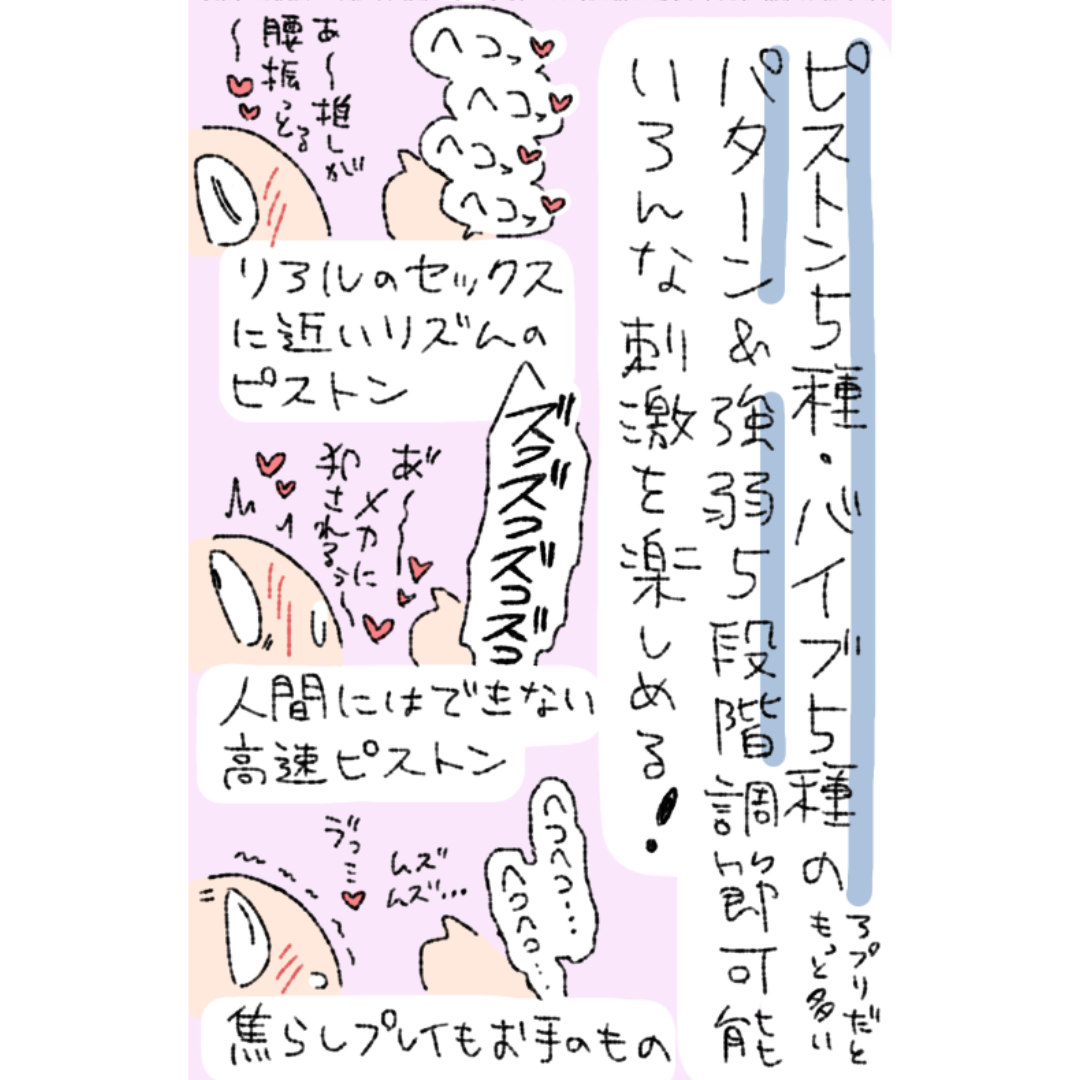 ピストン5種・バイブ5種の
アプリだと
もっと多い
パターン&強弱5段階調節可能
いろんな刺激を楽しめる!
ヘコッ
ヘコッ
ヘコッ
ヘコッ
あ〜推しが
腰振っとる
〜
リアルのセックス
に近いリズムの
ピストン
ズコズコズコズコ
あ゛〜
メカに
犯されるぅ〜
人間にはできない
高速ピストン
ヘコヘコ…
ヘコヘコ…
ムズ
ムズ…
ゔっ…
焦らしプレイもお手のもの